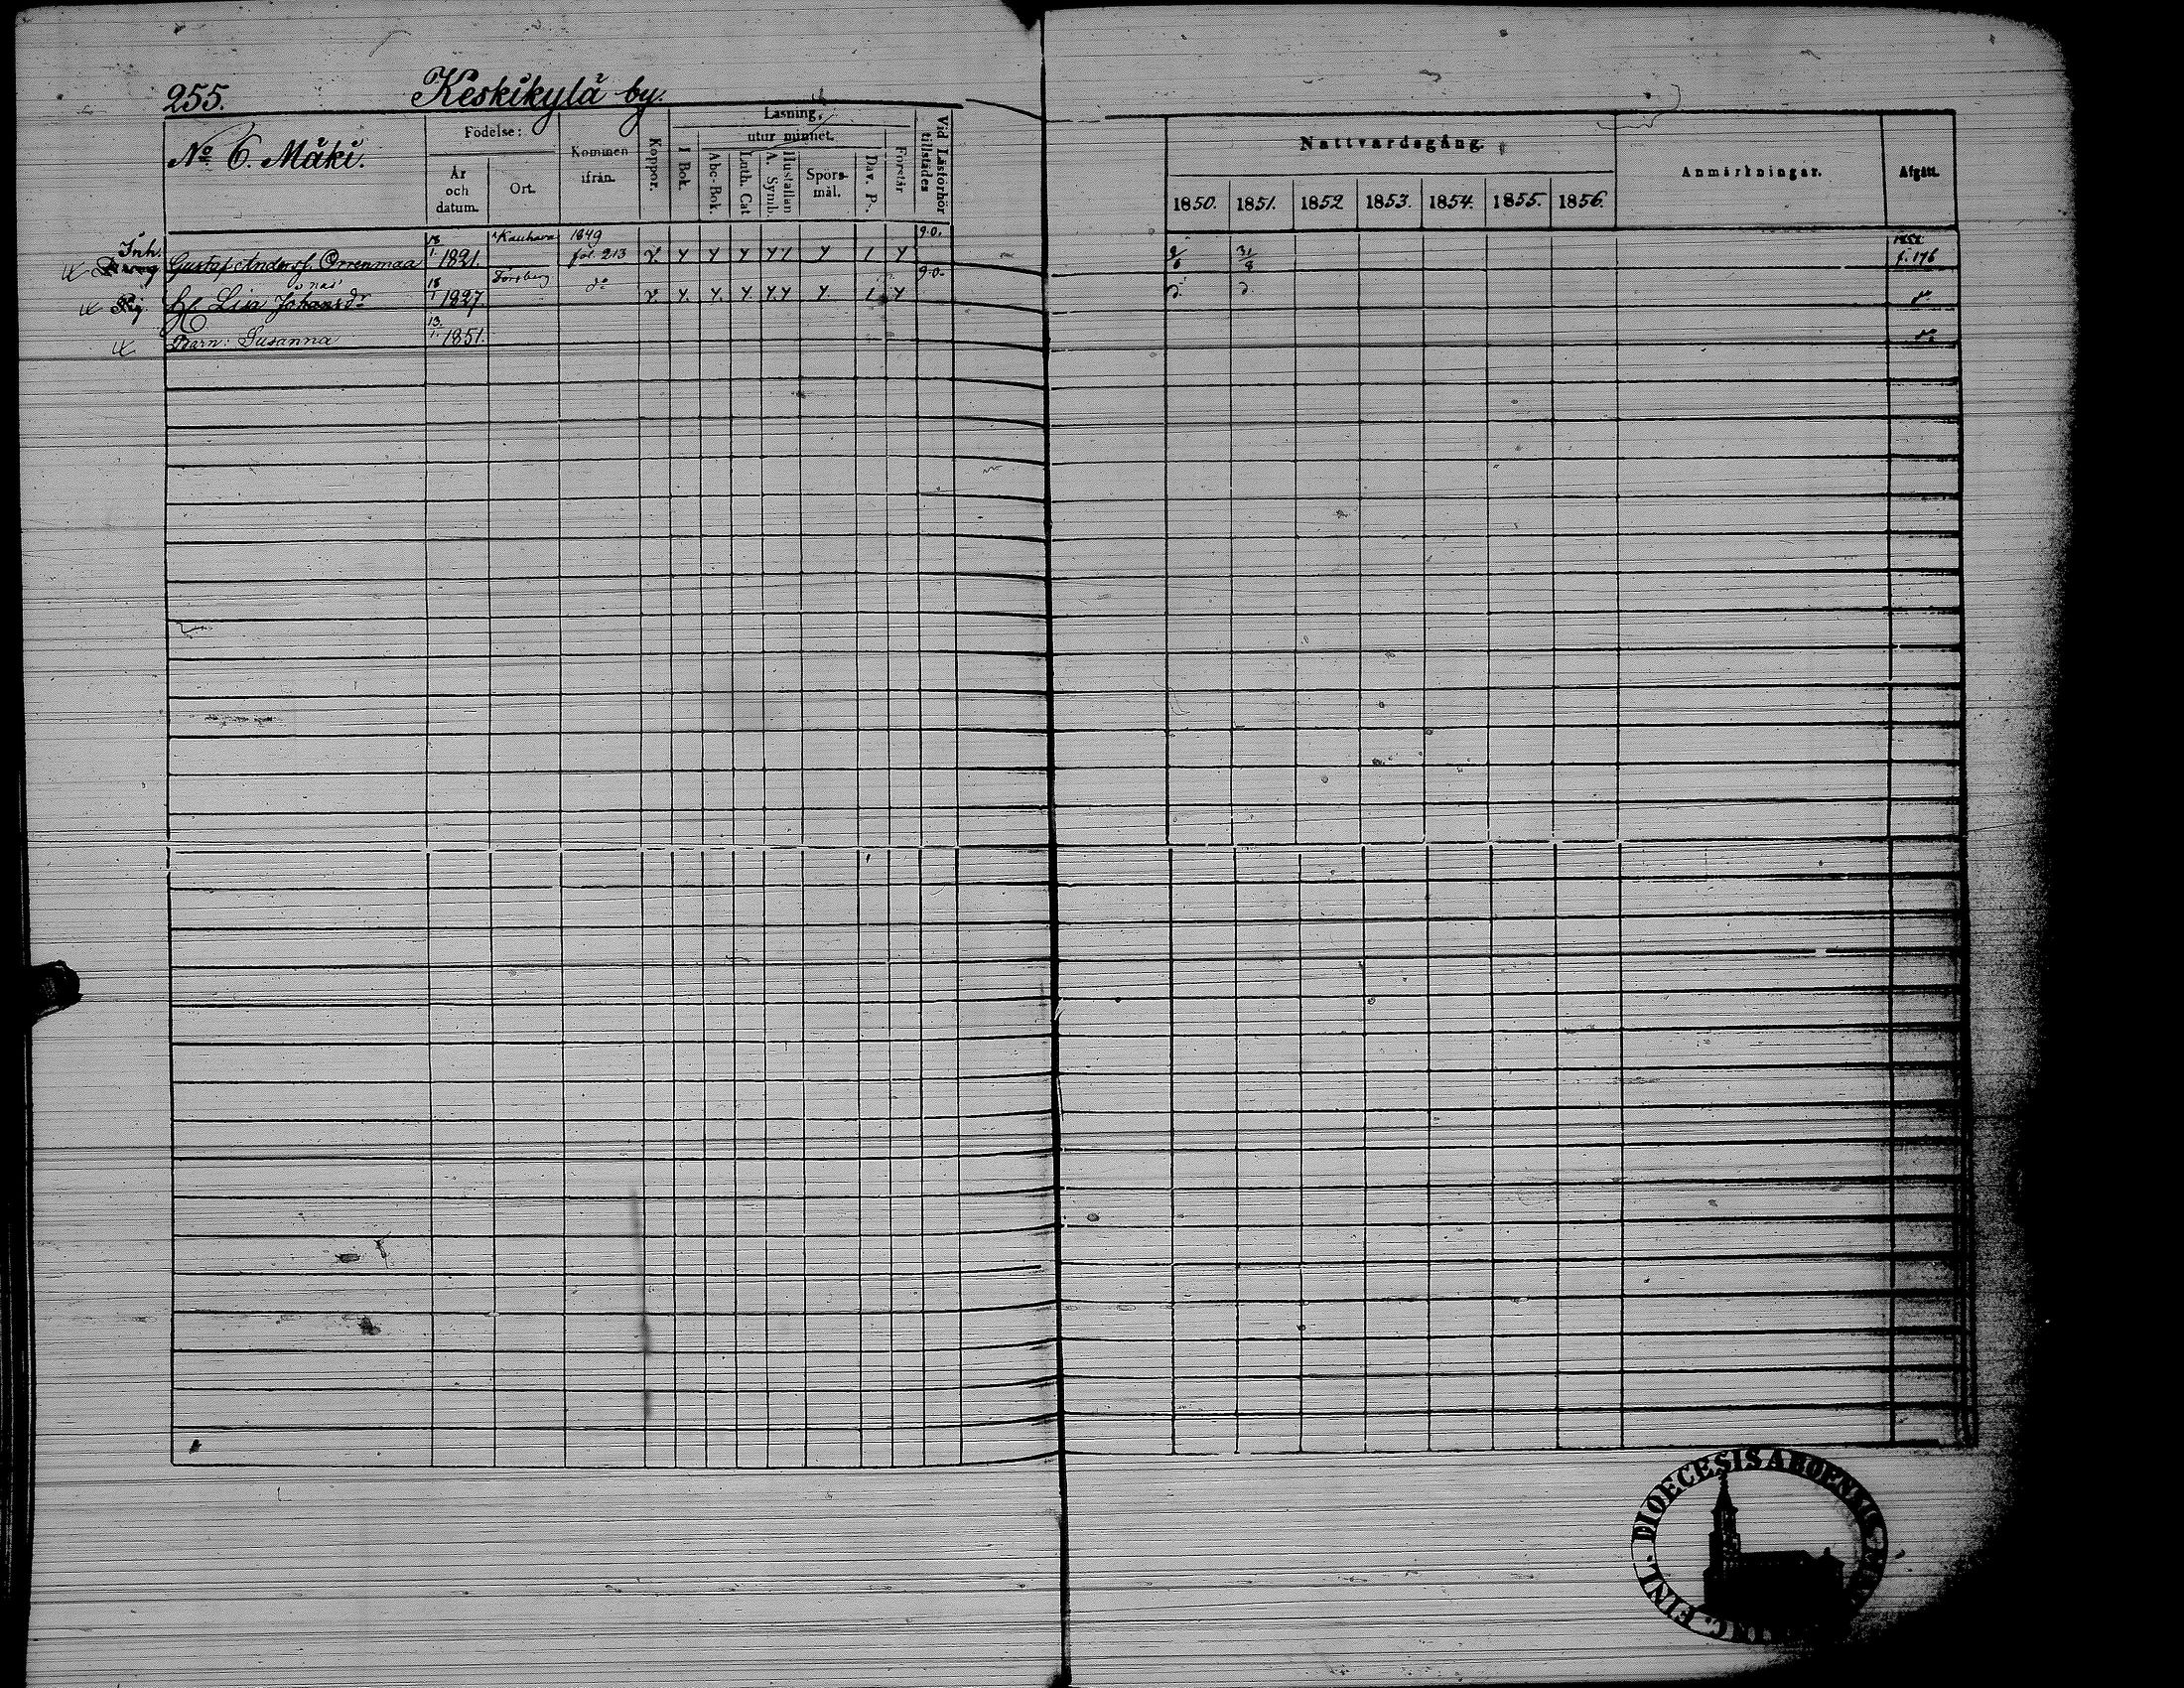 255. Keskikylä by.
Nº 6. Mäki.
Födelse:
År
och
datum.
Ort.
Kommen
ifrån.
Koppor.
Läsning,
utur minnet.
I Bok.
Abc-Bok.
Luth. Cat
A. Symb.
Hustaflan
Spörs-
mål.
Dav. Ps.
Förstår
Vid Läsförhör
tillstädes
Nattvardsgång.
1850. 1851. 1852 1853. 1854. 1855. 1856.
Anmärkningar.
Afgått.
Inh. Gustaf Andersf. Orrenmaa 18/1 1821. Kauhava 1849 fol. 213 9.0. 31/8 1852 f. 176
Pig. H. Lisa Johansdr Jonas 18/1 1827 Forsberg do 9.0.
Barn: Susanna 13/1. 1851.
DIOECESIS ABOENSIS FINL.